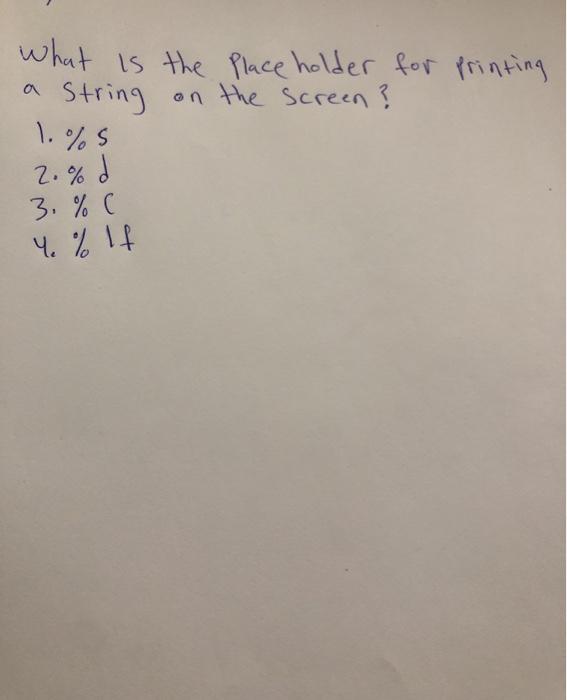 What Is the Place holder for Printing
a String on the Screen?
1. % s
2. % d
3. % C
4. % lf